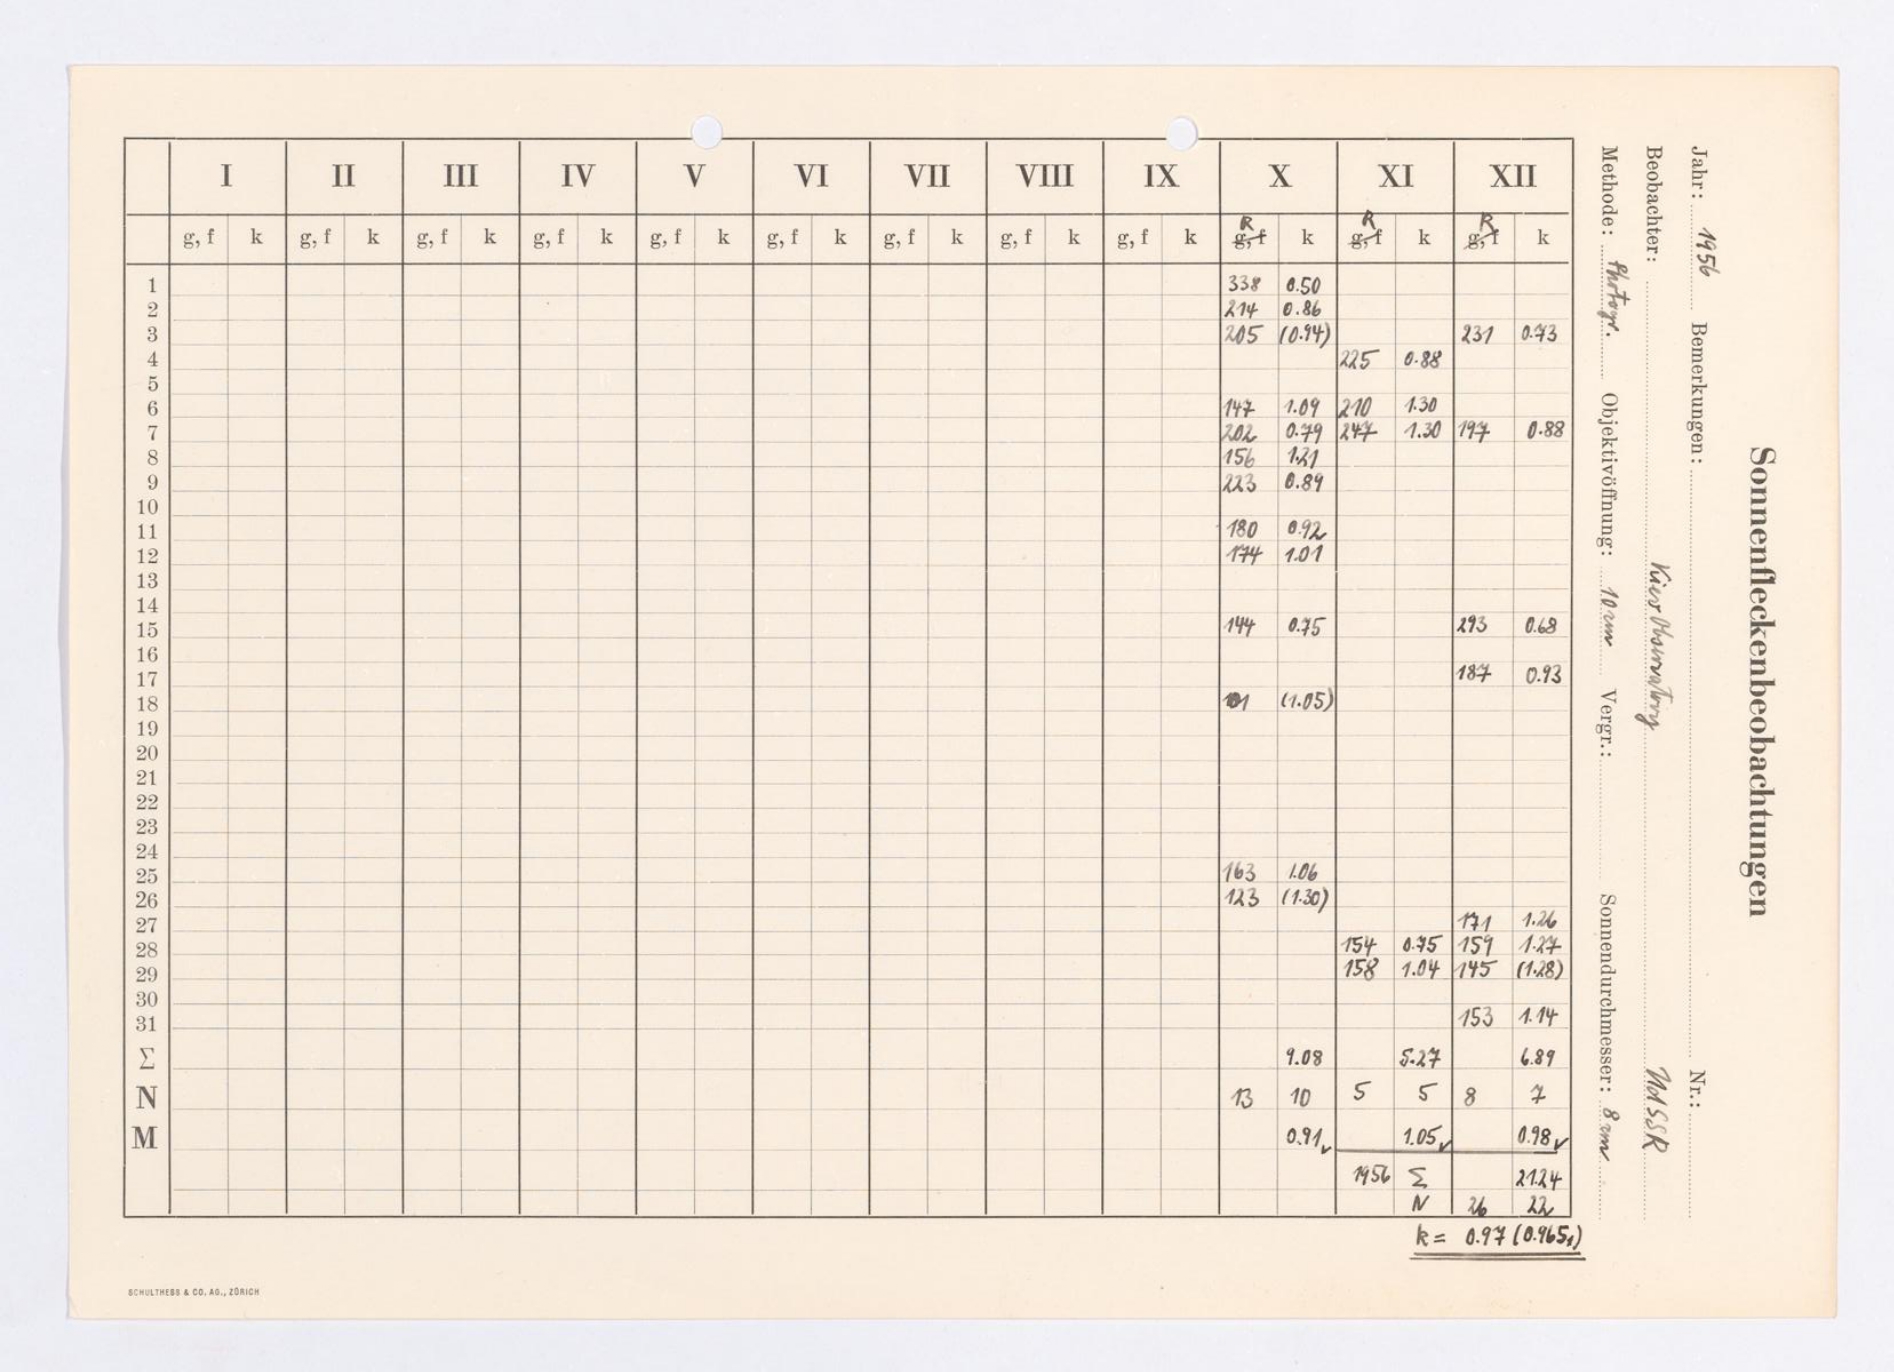 Sonnenfleckenbeobachtungen
Jahr: 1956 Bemerkungen: Nr.:
Beobachter: Kiev Observatory UdSSR
Methode: Photogr. Objektivöffnung: 10 cm Vergr.: Sonnendurchmesser: 8 cm
I II III IV V VI VII VIII IX X XI XII
R R R
g, f k g, f k g, f k g, f k g, f k g, f k g, f k g, f k g, f k g, f k g, f k g, f k
1 338 0.50
2 214 0.86
3 205 (0.94) 231 0.73
4 225 0.88
5
6 147 1.09 210 1.30
7 202 0.79 247 1.30 197 0.88
8 156 1.21
9 223 0.89
10
11 180 0.92
12 174 1.01
13
14
15 144 0.75 293 0.68
16
17 187 0.93
18 (1.05)
19
20
21
22
23
24
25 163 1.06
26 123 (1.30)
27 171 1.26
28 154 0.75 159 1.27
29 158 1.04 145 (1.28)
30
31 153 1.14
Σ 9.08 5.27 6.89
N 13 10 5 5 8 7
M 0.91 1.05 0.98
1956 Σ 21.24
N 26 22
k = 0.97 (0.965₁)
SCHULTHESS & CO. AG., ZÜRICH